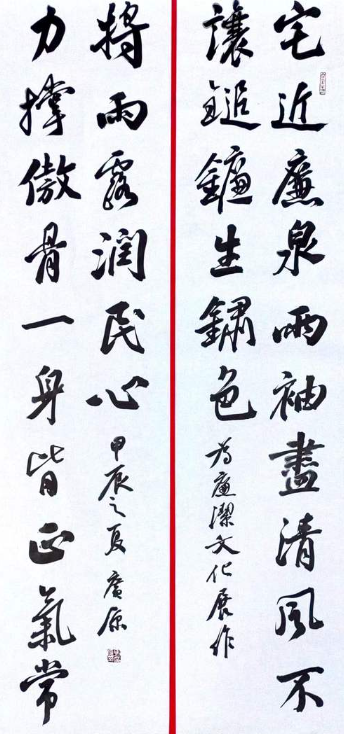 宅近廉泉兩袖盡清風不
讓鎚鐮生鏽色
為廉潔文化展作
力撐傲骨一身皆正氣常
將雨露潤民心
甲辰之夏